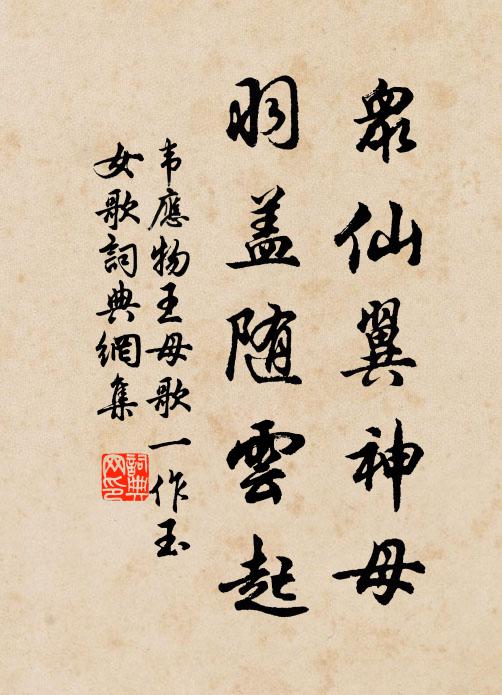 眾仙翼神母
羽盖随雲起
韦應物王母歌一作玉
女歌詞典網集
詞典網印